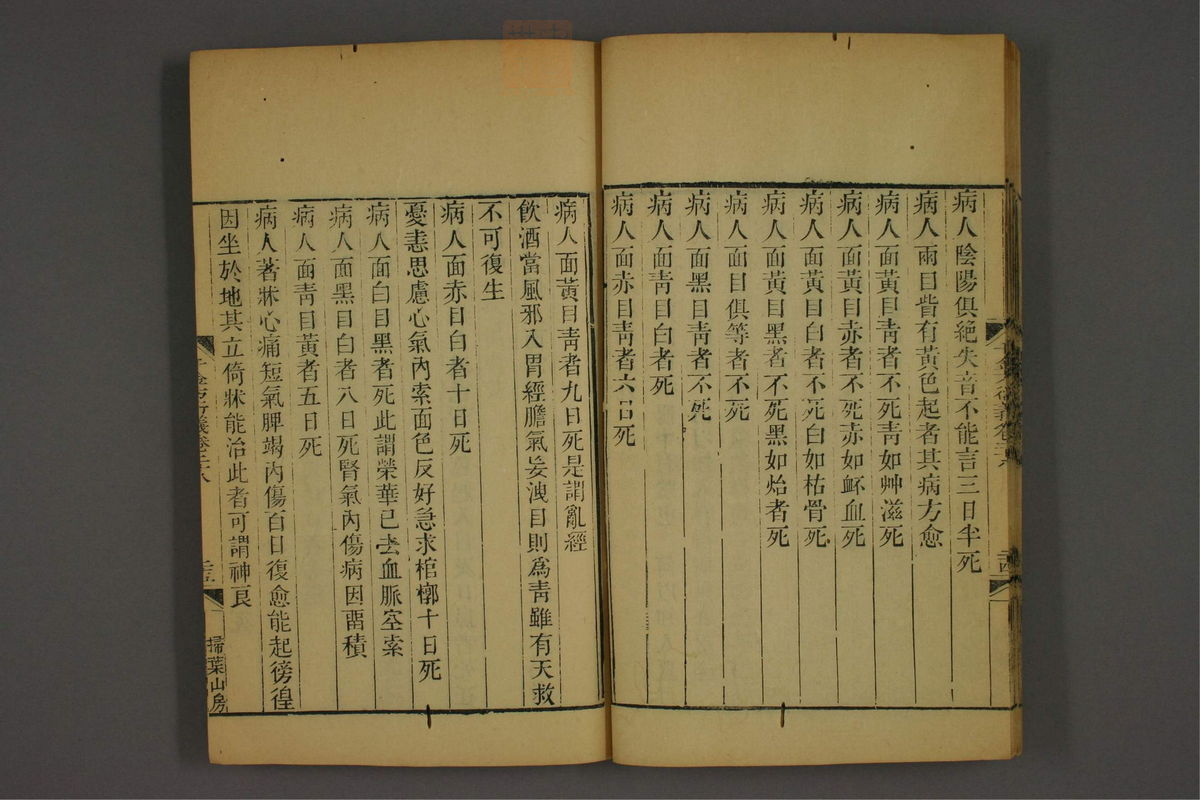 病人陰陽俱絕失音不能言三日半死
病人兩目眥有黃色起者其病方愈
病人面黃目靑者不死靑如艸滋死
病人面黃目赤者不死赤如衃血死
病人面黃目白者不死白如枯骨死
病人面黃目黑者不死黑如炲者死
病人面目俱等者不死
病人面黑目靑者不死
病人面靑目白者死
病人面赤目靑者六日死
病人面黃目靑者九日死是謂亂經
飮酒當風邪入胃經膽氣妄洩目則爲靑雖有天救
不可復生
病人面赤目白者十日死
憂恚思慮心氣內索面色反好急求棺槨十日死
病人面白目黑者死此謂榮華已去血脈空索
病人面黑目白者八日死腎氣內傷病因畱積
病人面靑目黃者五日死
病人著牀心痛短氣脾竭內傷百日復愈能起徬徨
因坐於地其立倚牀能治此者可謂神良
千金方衍義卷二十八
三五
掃葉山房